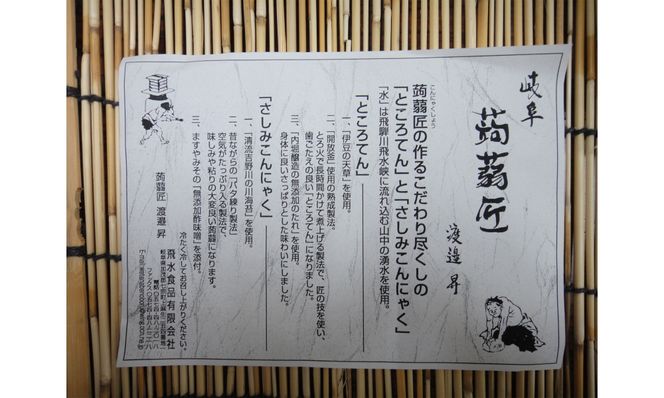 岐阜
蒟蒻匠
渡邉 昇
こんにゃくしょう
蒟蒻匠の作るこだわり尽くしの
「ところてん」と「さしみこんにゃく」
「水」は飛騨川飛水峡に流れ込む山中の湧水を使用。
「ところてん」
一、「伊豆の天草」を使用。
二、「開放釜」使用の熟成製法。
とろ火で長時間かけて煮上げる製法で、匠の技を使い、
歯ごたえの良い「ところてん」になりました。
三、「内堀醸造の無添加のたれ」を使用。
身体に良いさっぱりとした味わいにしました。
「さしみこんにゃく」
一、「清流吉野川の川海苔」を使用。
二、昔ながらの「バタ練り製法」で、
空気がたっぷり入る製法で、
味しみや粘りの大変良い蒟蒻になります。
三、ますやみその「無添加酢味噌」を添付。
冷たく冷してお召し上がりください。
蒟蒻匠 渡邉 昇
飛水食品有限会社